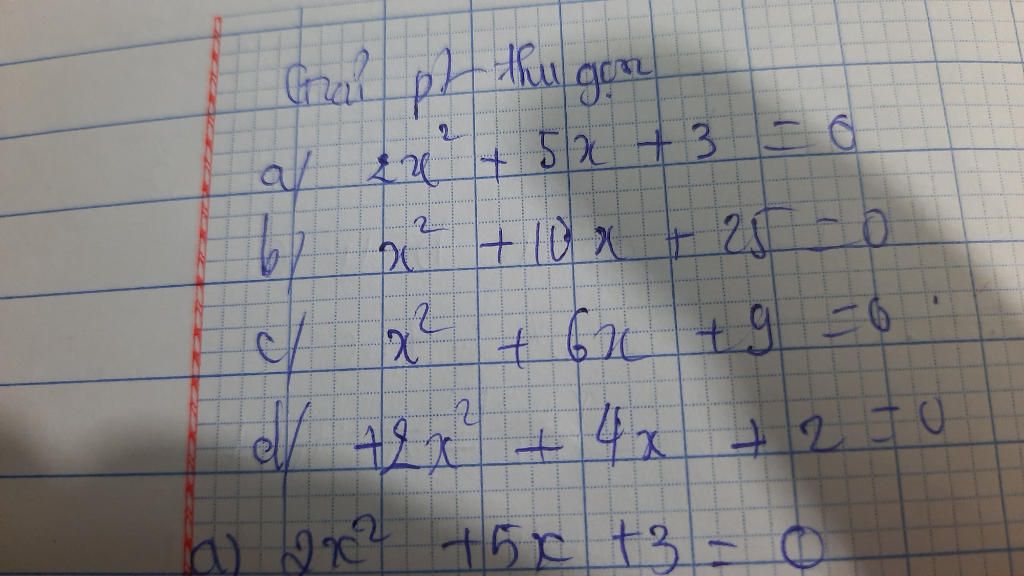 Giải pt thu gọn
a/ 2x² + 5x + 3 = 0
b/ x² + 10x + 25 = 0
c/ x² + 6x + 9 = 0
d/ +2x² + 4x + 2 = 0
a) 2x² + 5x + 3 = 0